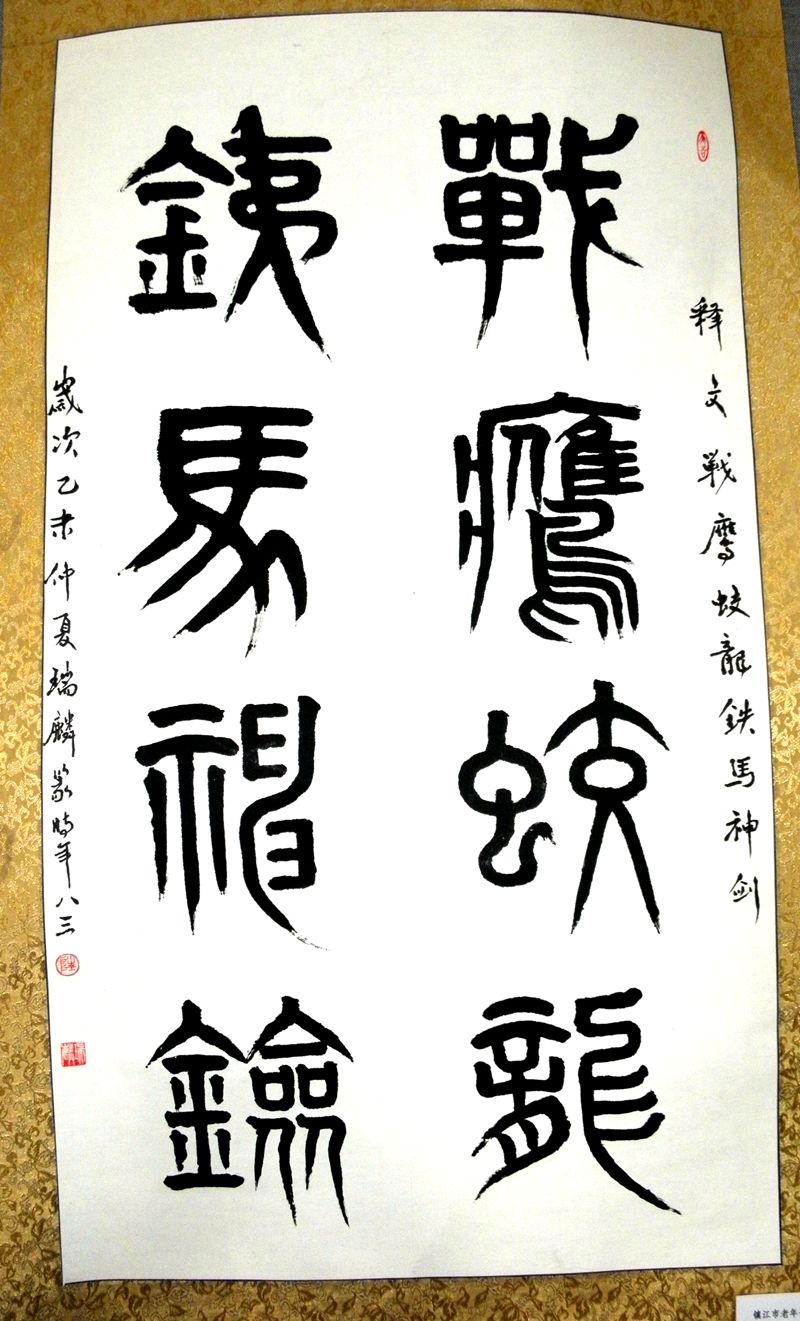 释文战鹰蛟龍鉄馬神剑
戰鷹蛟龍
銕馬神鐱
歲次乙未仲夏瑞麟篆時年八三
镇江市老年